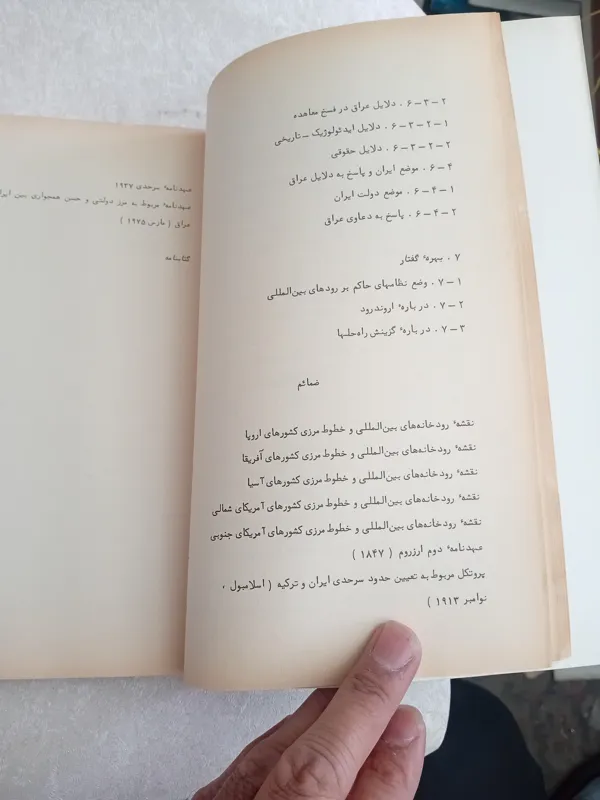 ۶ – ۳ – ۲ . دلایل عراق در فسخ معاهده
۶ – ۳ – ۲ – ۱ . دلایل ایدئولوژیک – تاریخی
۶ – ۳ – ۲ – ۲ . دلایل حقوقی
۶ – ۴ . موضع ایران و پاسخ به دلایل عراق
۶ – ۴ – ۱ . موضع دولت ایران
۶ – ۴ – ۲ . پاسخ به دعاوی عراق
۷ . بهرهٔ گفتار
۷ – ۱ . وضع نظامهای حاکم بر رودهای بین‌المللی
۷ – ۲ . دربارهٔ اروندرود
۷ – ۳ . دربارهٔ گزینش راه‌حلها
ضمائم
نقشهٔ رودخانه‌های بین‌المللی و خطوط مرزی کشورهای اروپا
نقشهٔ رودخانه‌های بین‌المللی و خطوط مرزی کشورهای آفریقا
نقشهٔ رودخانه‌های بین‌المللی و خطوط مرزی کشورهای آسیا
نقشهٔ رودخانه‌های بین‌المللی و خطوط مرزی کشورهای آمریکای شمالی
نقشهٔ رودخانه‌های بین‌المللی و خطوط مرزی کشورهای آمریکای جنوبی
عهدنامهٔ دوم ارزروم ( ۱۸۴۷ )
پروتکل مربوط به تعیین حدود سرحدی ایران و ترکیه ( اسلامبول ،
نوامبر ۱۹۱۳ )
عهدنامهٔ سرحدی ۱۹۳۷
عهدنامهٔ مربوط به مرز دولتی و حسن همجواری بین ایرا
عراق ( مارس ۱۹۷۵ )
کتابنامه